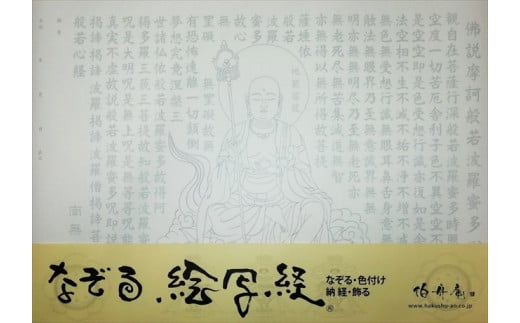 佛說摩訶般若波羅蜜多
觀自在菩薩行深般若波羅蜜多時照
空度一切苦厄舍利子色不異空空不
是空空即是色受想行識亦復如是舍
法空相不生不滅不垢不淨不增不減
無色無受想行識無眼耳鼻舌身意無
觸法無眼界乃至無意識界無無
明亦無無明盡乃至無老死亦
無老死盡無苦集滅道無智
亦無得以無所得故菩提
薩埵依
般若
波羅
蜜多
故心
無罣礙無罣礙故無
有恐怖遠離一切顛倒
夢想究竟涅槃三
世諸佛依般若波羅蜜多故得阿
耨多羅三藐三菩提故知般若波羅蜜多
呪是大明呪是無上呪是無等等呪能
真實不虛故說般若波羅蜜多呪即說
揭諦揭諦波羅揭諦波羅僧揭諦菩
般若心経
南無
地蔵菩薩
なぞる 絵写経
なぞる・色付け
納経・飾る
伯舟庵
www.hakushu-an.co.jp